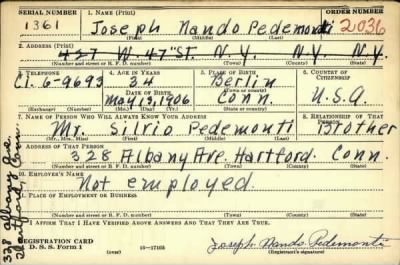 SERIAL NUMBER 1. NAME (Print) ORDER NUMBER
1361 Joseph Nando Pedemonti 2036
(First) (Middle) (Last)
2. ADDRESS (Print)
457 W. 47" ST. N.Y. N.Y. N.Y.
(Number and street or R. F. D. number) (Town) (County) (State)
3. TELEPHONE 4. AGE IN YEARS 5. PLACE OF BIRTH 6. COUNTRY OF CITIZENSHIP
CI. 6-9693 34 Berlin
DATE OF BIRTH (Town or county)
May 13, 1906 Conn. U.S.A.
(Exchange) (Number) (Mo.) (Day) (Yr.) (State or country)
7. NAME OF PERSON WHO WILL ALWAYS KNOW YOUR ADDRESS 8. RELATIONSHIP OF THAT PERSON
Mr. Silvio Pedemonti Brother
(Mr., Mrs., Miss) (First) (Middle) (Last)
9. ADDRESS OF THAT PERSON
328 Albany Ave. Hartford. Conn.
(Number and street or R. F. D. number) (Town) (County) (State)
10. EMPLOYER'S NAME
Not employed.
11. PLACE OF EMPLOYMENT OR BUSINESS
(Number and street or R. F. D. number) (Town) (County) (State)
I AFFIRM THAT I HAVE VERIFIED ABOVE ANSWERS AND THAT THEY ARE TRUE.
REGISTRATION CARD
D. S. S. Form 1 16-17105 Joseph Nando Pedemonti
(Registrant's signature)
328 Albany Ave.
Hartford, Conn